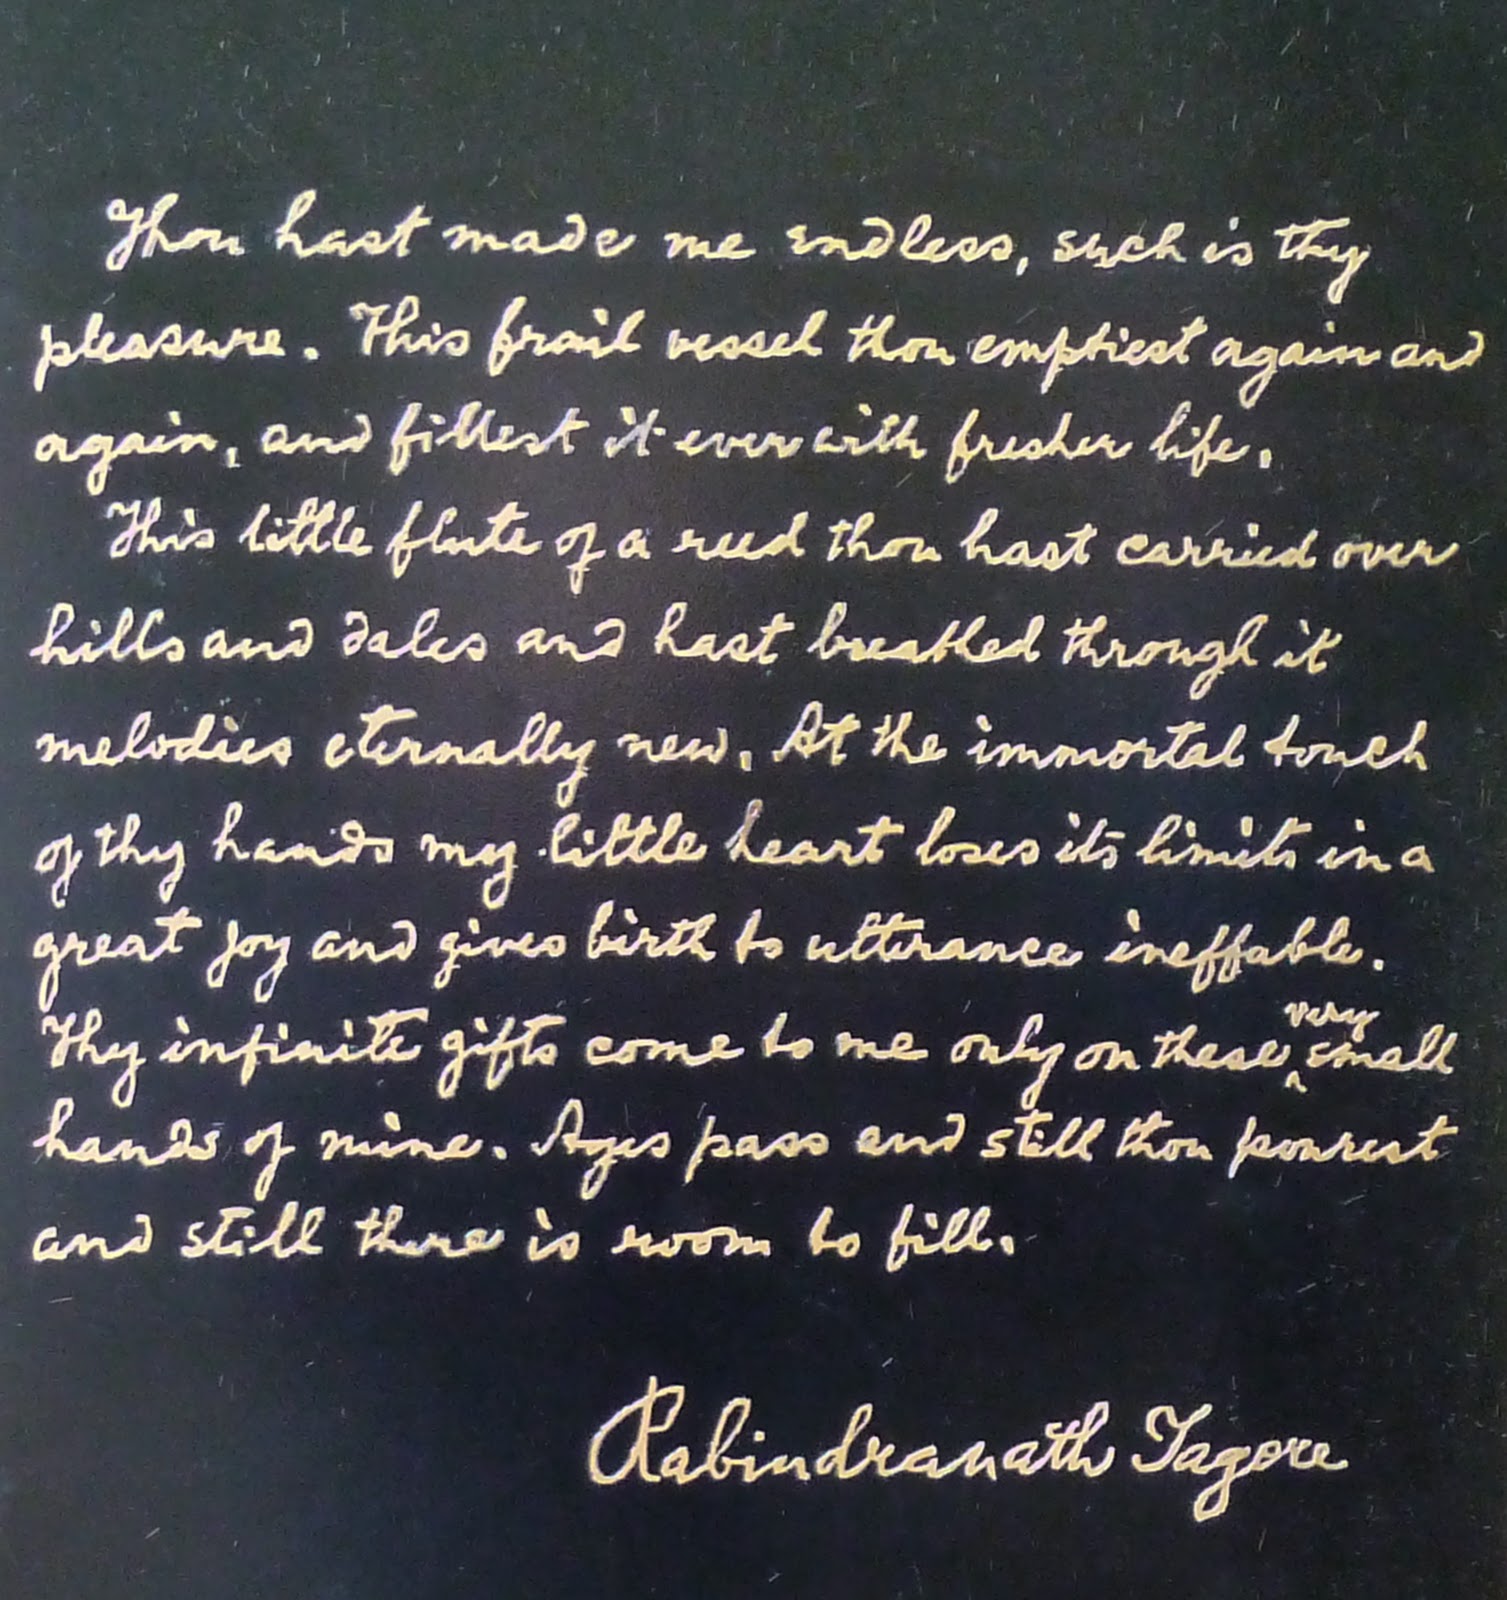 Thou hast made me endless, such is thy
pleasure. This frail vessel thou emptiest again and
again, and fillest it ever with fresher life.
This little flute of a reed thou hast carried over
hills and dales and hast breathed through it
melodies eternally new. At the immortal touch
of thy hands my little heart loses its limits in a
great joy and gives birth to utterance ineffable.
Thy infinite gifts come to me only on these very small
hands of mine. Ages pass and still thou pourest
and still there is room to fill.
Rabindranath Tagore